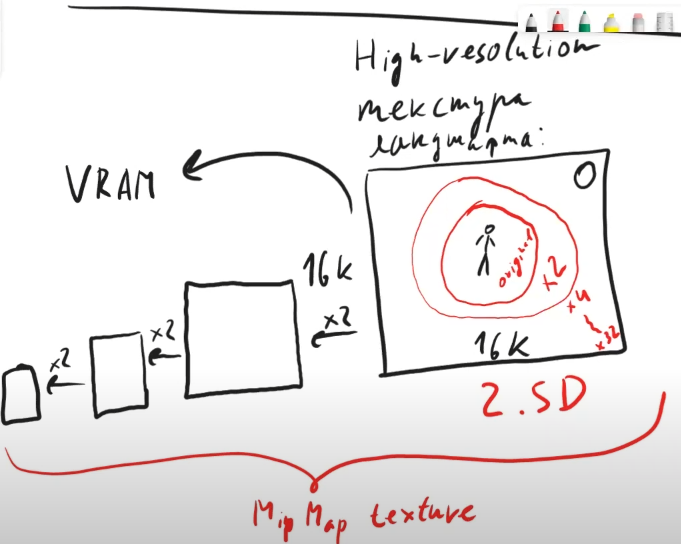 High-resolution
текстура
ландшарта:
VRAM
16k
x2
x2
x2
original
x2
x4
x32
16K
2.5D
MipMap texture